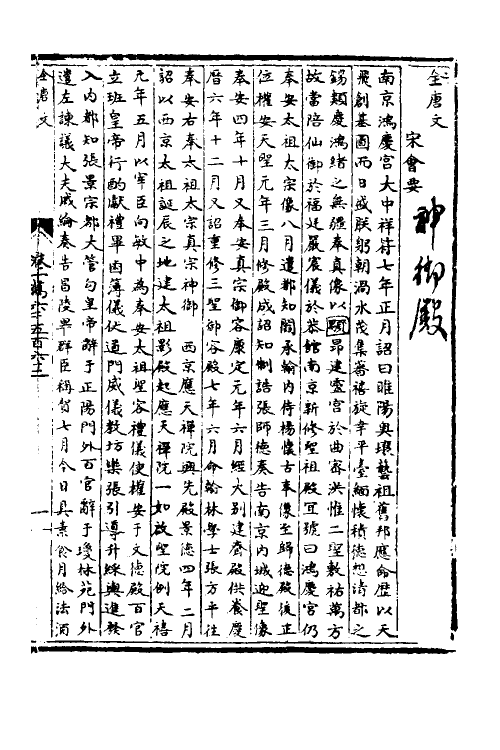 全唐文
宋會要
神御殿
南京鴻慶宮大中祥符七年正月詔曰睢陽奧壤藝祖舊邦應命歷以天
飛創基圖而日盛朕躬朝渦水茂集蕃禧旋幸平臺緬懷積德想清都之
錫類慶鴻緒之無疆奉真像以顯昂建靈宮於曲密洪惟二聖敷祐萬方
故當陪仙御於福庭嚴宸儀於恭館南京新修聖祖殿宜號曰鴻慶宮仍
奉安太祖太宗像八月遣都知閻承翰內侍楊懷古奉像至歸德殿後正
位權安天聖元年三月修殿成詔知制誥張師德奏告南京內城迎聖像
奉安四年十月又奉安真宗御容康定元年六月經大別建齋殿供養慶
曆六年十二月又詔重修三聖御容殿七年六月命翰林學士張方平往
奉安右奉太祖太宗真宗神御 西京應天禪院興先殿景德四年二月
詔以西京太祖誕辰之地建太祖影殿起應天禪院一如啟聖院例天禧
元年五月以宰臣向敏中為奉安太祖聖容禮儀使權安于文德殿百官
立班皇帝行酌獻禮畢鹵簿儀仗道門威儀教坊樂張引導升綵輿進發
入內都知張景宗都大管勾皇帝辭于正陽門外百官辭于瓊林苑門外
遣左諫議大夫戚綸奏告昌陵畢群臣稱賀七月今日具素食月給法酒
全唐文
卷一萬六千五百六十二
一